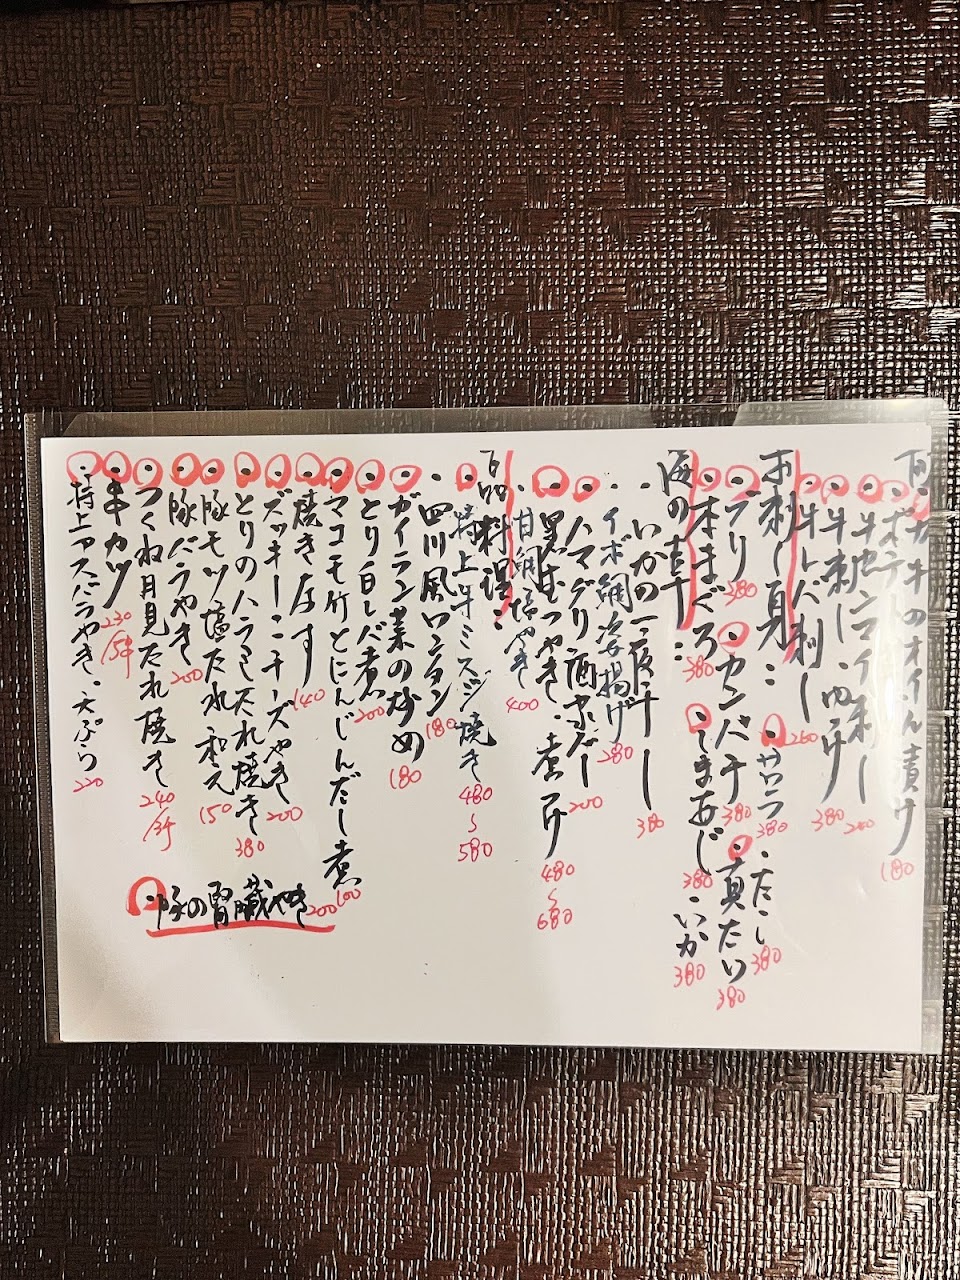 牛のオイル漬け 180
牛センマイ刺し 200
・牛刺し・ 380
牛レバ刺し 260
お刺し身:
・サワラ 380
・たこ 380
・ブリ 380
・カンパチ 380
・真たい 380
・本まぐろ 380
・しまあじ 380
・いか 380
海の幸:
・いかの一夜干し 380
・イボ鯛姿揚げ 280
・ハマグリ酒蒸し 200
・煮つけ 480~680
・甘鯛塩やき 400
一品料理:
・特上牛ミスジ焼き 480~580
・四川風ワンタン 180
・ガイラン菜の炒め 180
・とり白レバ煮 200
・マコモ竹とにんじんだし煮 100
・焼きなす 140
・ズッキーニチーズやき 200
・とりのハラミたれ焼き 380
・豚モツ塩だれ和え 150
・豚バラやき 200
・つくね月見たれ焼き 240
・串カツ 230
・特上アスパラやき・天ぷら 220
・豚の腎臓やき 200